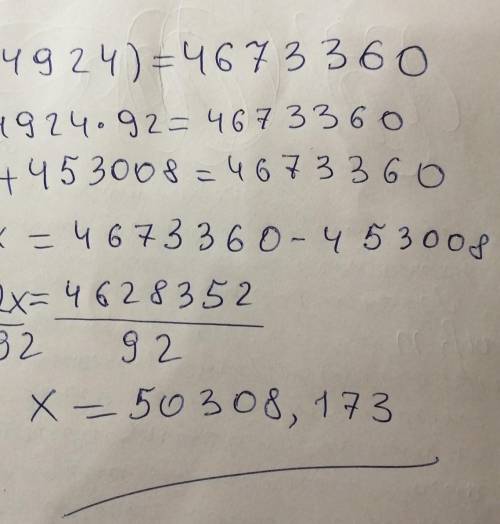 4924)=4673360
4924·92=4673360
+453008=4673360
x=4673360-453008
2x=4628352
92 92
x=50308,173